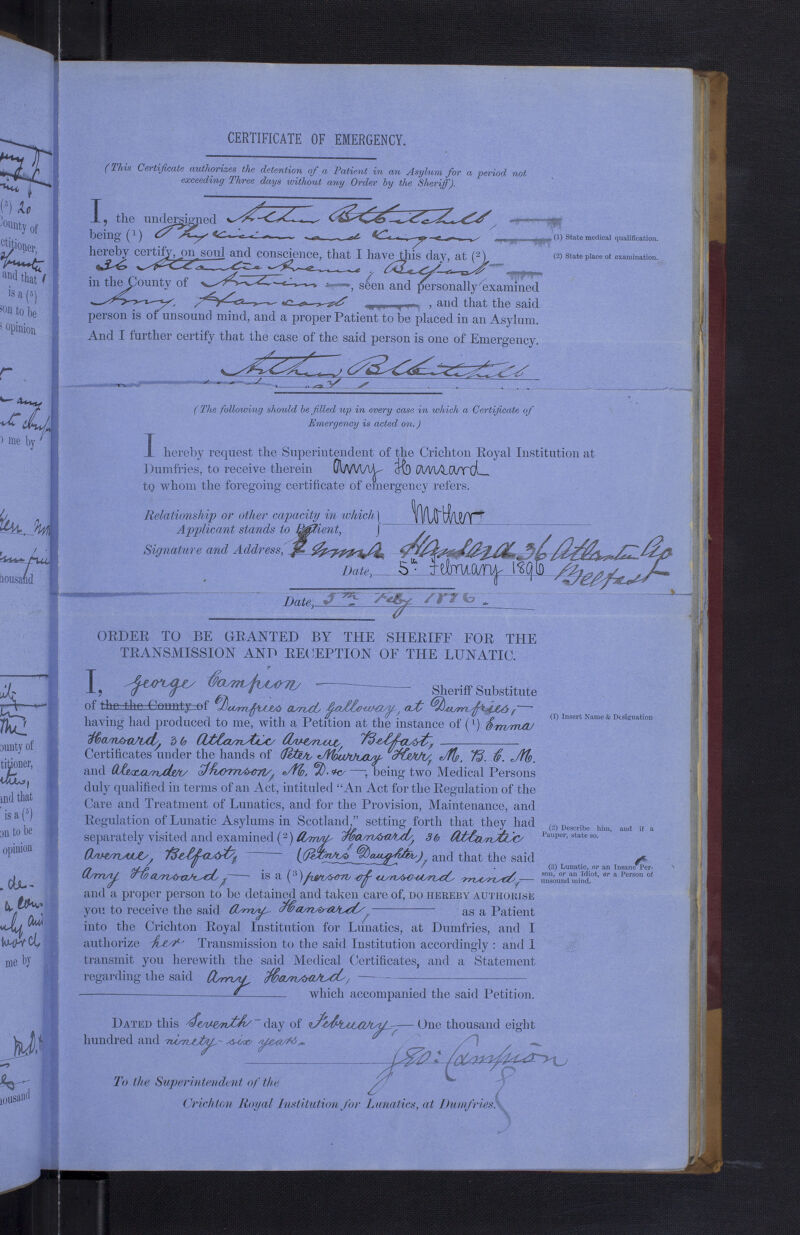 CERTIFICATE OF EMERGENCY.
(This Certificate authorizes the detention of a Patient in an Asylum for a period not
exceeding Three days without any Order by the Sheriff).
I, the undersigned Arthur B Mitchell,
being (1) Physician and Surgeon
(1) State medical qualification.
hereby certify, on soul and conscience, that I have this day, at (2)
(2) State place of examination.
36 Atlantic Avenue, Belfast
in the County of Antrim, seen and personally examined
Amy Hansard, and that the said
person is of unsound mind, and a proper Patient to be placed in an Asylum.
And I further certify that the case of the said person is one of Emergency.
Arthur B Mitchell
(The following should be filled up in every case in which a Certificate of
Emergency is acted on.)
I hereby request the Superintendent of the Crichton Royal Institution at
Dumfries, to receive therein Amy Hansard
to whom the foregoing certificate of emergency refers.
Relationship or other capacity in which
Applicant stands to Patient, } Mother
Signature and Address, Emma Hansard 36 Atlantic Av
Belfast
Date, 5th February 1896
Date, 5th Feby 1896.
ORDER TO BE GRANTED BY THE SHERIFF FOR THE
TRANSMISSION AND RECEPTION OF THE LUNATIC.
I, George Campion Sheriff Substitute
of the the County of Dumfries and Galloway, at Dumfries,
having had produced to me, with a Petition at the instance of (1) Emma
(1) Insert Name & Designation
Hansard, 36 Atlantic Avenue, Belfast,
Certificates under the hands of Peter Murray Kerr, M. B. C. M.
and Alexander Thomson, M. D. &c, being two Medical Persons
duly qualified in terms of an Act, intituled "An Act for the Regulation of the
Care and Treatment of Lunatics, and for the Provision, Maintenance, and
Regulation of Lunatic Asylums in Scotland," setting forth that they had
separately visited and examined (2) Amy Hansard, 36 Atlantic
(2) Describe him, and if a
Pauper, state so.
Avenue, Belfast, (Petnrs Daughter), and that the said
Amy Hansard, is a (3) person of unsound mind,
(3) Lunatic, or an Insane Per-
son, or an Idiot, or a Person of
unsound mind.
and a proper person to be detained and taken care of, DO HEREBY AUTHORISE
you to receive the said Amy Hansard, as a Patient
into the Crichton Royal Institution for Lunatics, at Dumfries, and I
authorize her Transmission to the said Institution accordingly : and I
transmit you herewith the said Medical Certificates, and a Statement
regarding the said Amy Hansard,
which accompanied the said Petition.
DATED this Seventh day of February, One thousand eight
hundred and ninety-six years.
Geo: Campion
To the Superintendent of the
Crichton Royal Institution for Lunatics, at Dumfries.